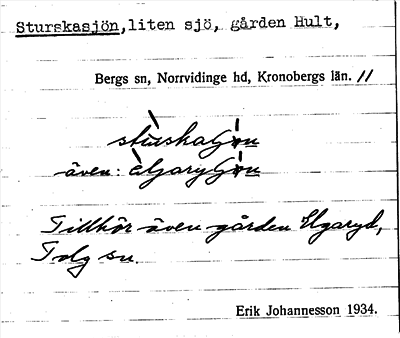 Sturskasjön, liten sjö, gården Hult,
Bergs sn, Norrvidinge hd, Kronobergs län. 11
även:
Tillhör även gården Elgaryd,
Tolg sn.
Erik Johannesson 1934.